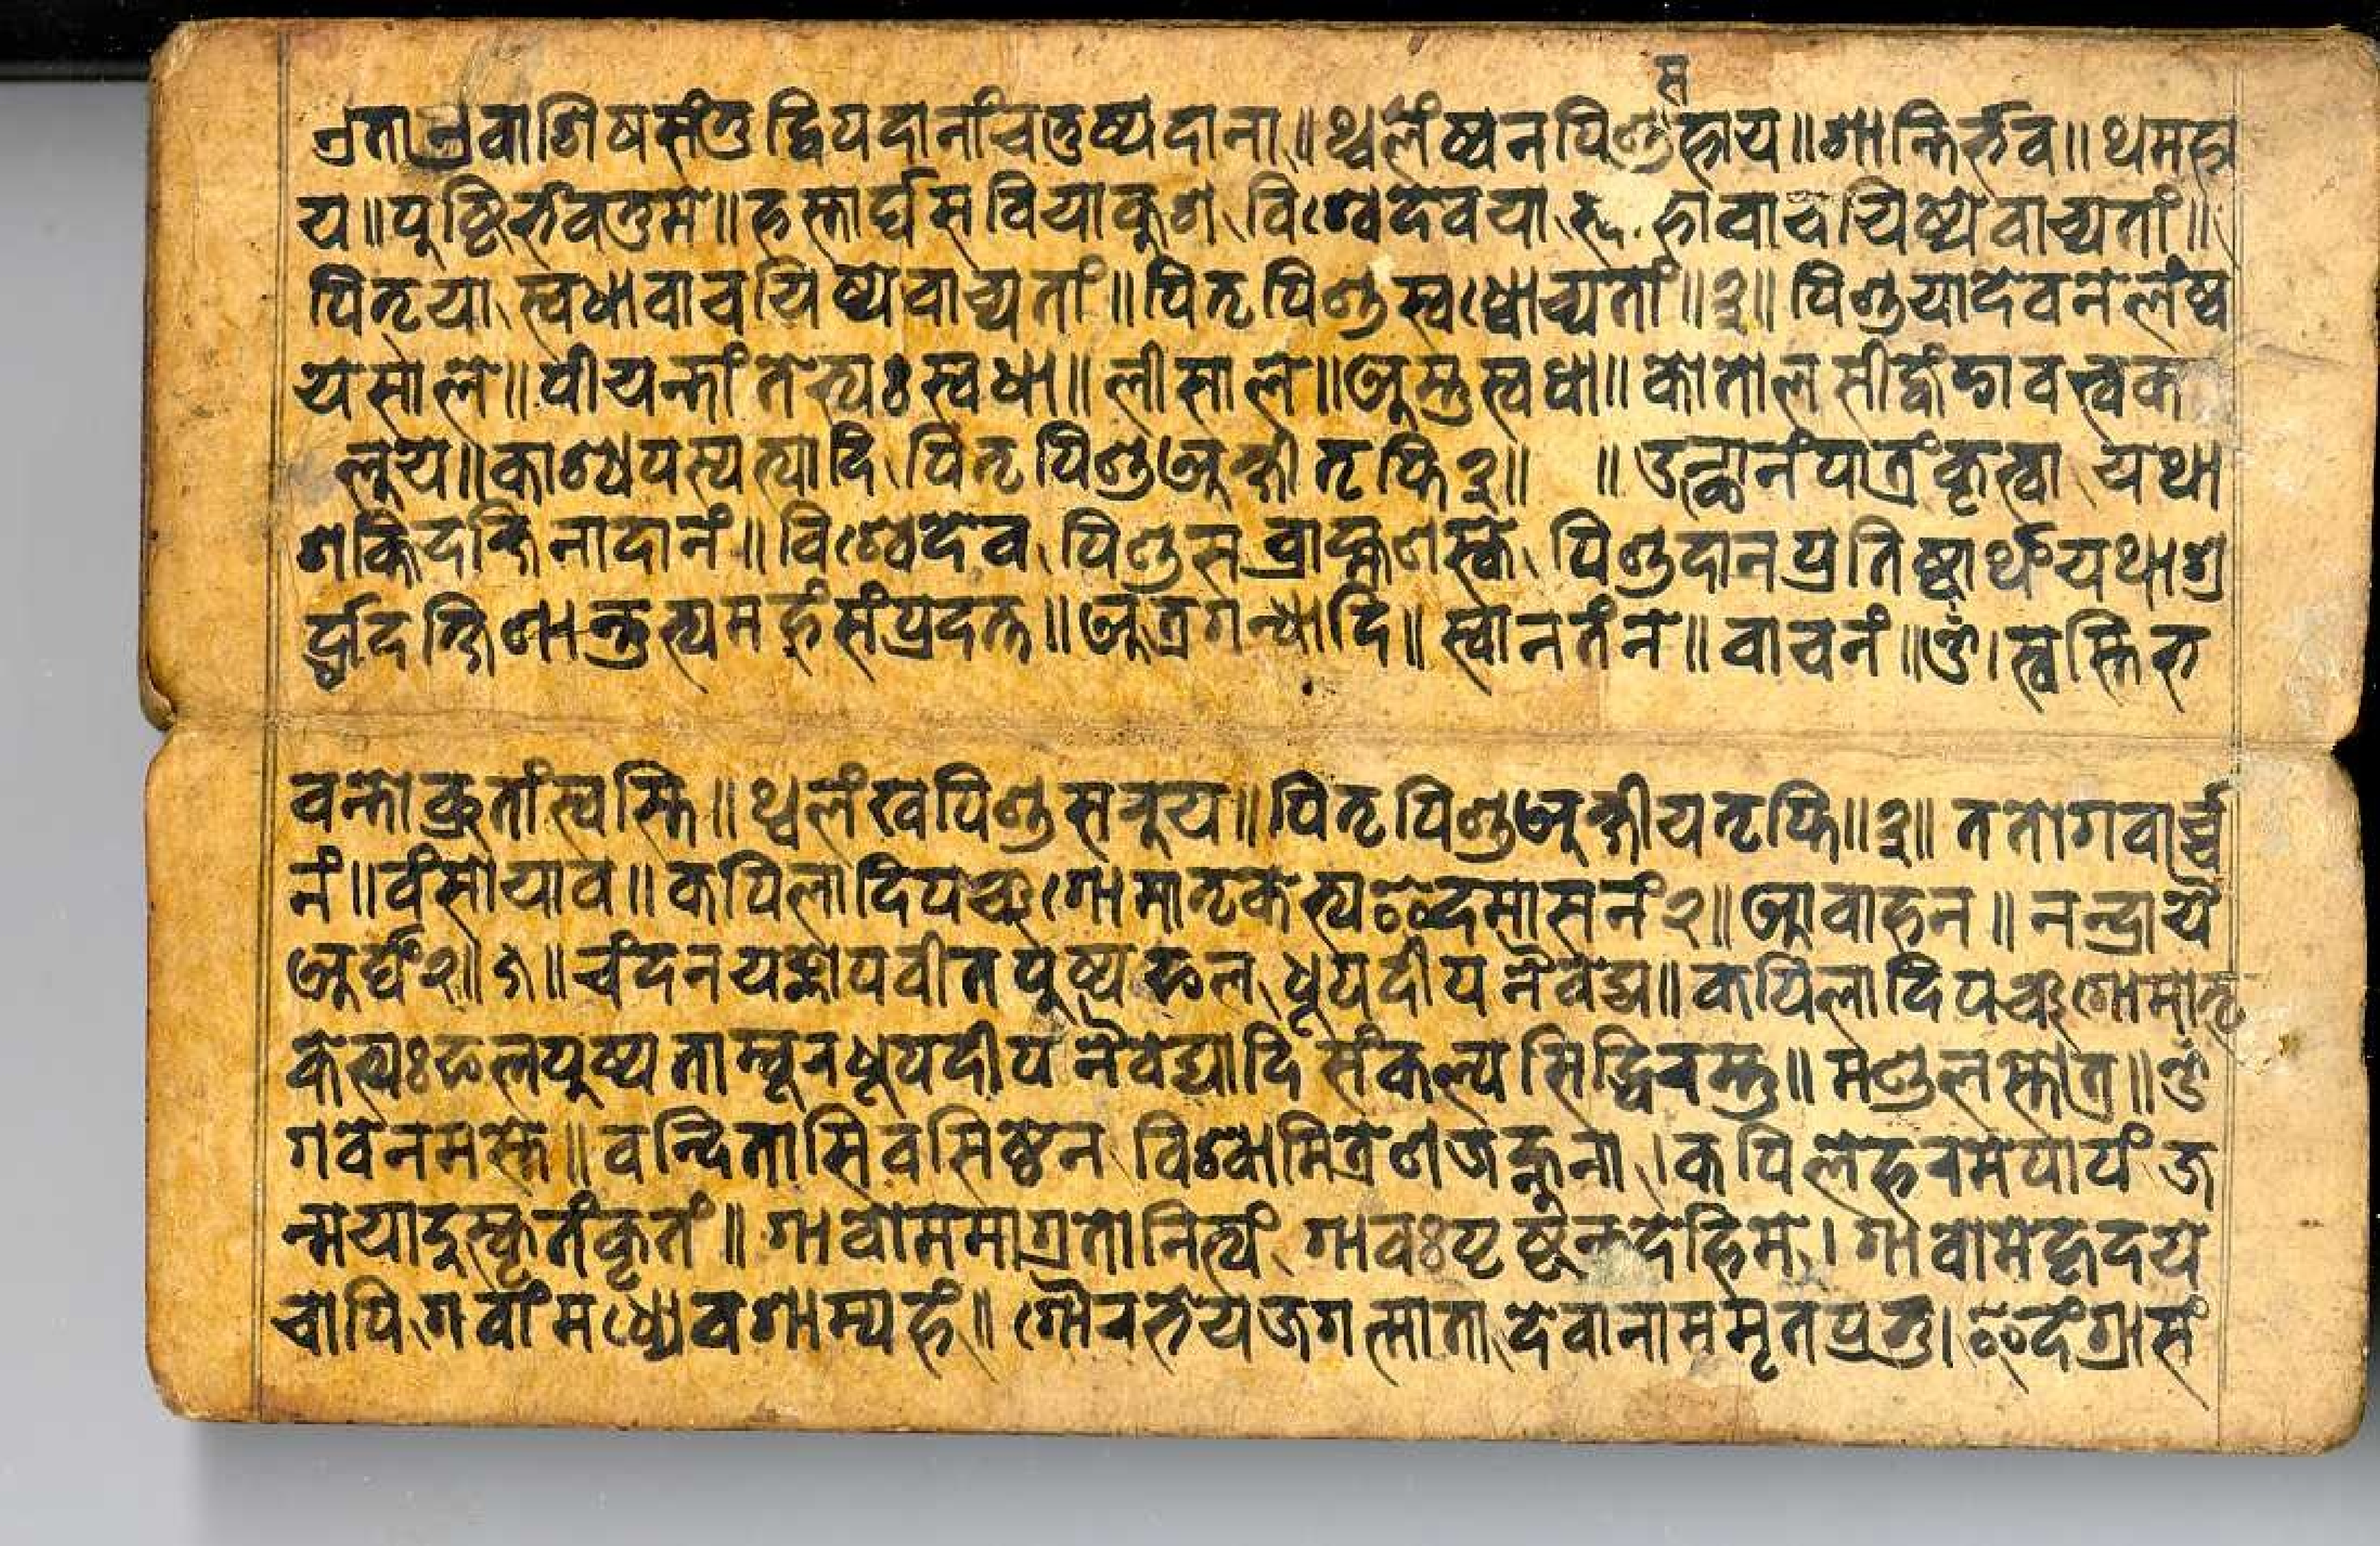 एता एवाशिषसंतु द्विपदानांचतुष्पदाना॥ थ्वलंख्वनपिण्डसहाय॥ शान्तिर्भव॥ थमहा
य॥ पुष्टिर्भवतुमे॥ हस्तार्घसवियाकुश विश्वेदेवया स्वाहावाचयिष्येवाच्यतां॥
पितृया स्वधावाचयिष्येवाच्यतां॥ पितृपिण्डस्वधोच्यतां॥३॥ पिण्डयादेवनेलंख
येसोले॥ वीयन्तां तेभ्यःस्वधा॥ लीसाले॥ अस्तुस्वधा॥ कोतोल
लुय॥ काश्यपस्यत्यादि पितृपिण्डअक्षीतृप्ति३॥ ॥ उत्थानंपात्रंकृत्वा यथा
शक्तिदक्षिनादानं॥ विश्वेदेव पिण्डस ब्राह्मणस्के पिण्डदानप्रतिष्ठार्थंयथाश्र
र्द्धादक्षिणान्तुभ्यमहंसंप्रदत्त॥ अत्रगन्धादि॥ स्वानतंने॥ वाचनं॥ ॐ। स्वस्तिभ
वन्तोब्रुतांस्वस्ति॥ थ्वलंखपिण्डसबुय॥ पितृपिण्डअक्षीयतृप्ति॥३॥ ततोगवार्च्च
नं॥ वंसोयाव॥ कपिलादिपञ्चगोमातृकेभ्यइदमासनं२॥ आवाहन॥ नन्द्रायै
अर्घं२॥ ॥ चंदनयज्ञोपवीतपुष्पफल धूपदीपनैवेद्य॥ कपिलादिपञ्चगोमातृ
केभ्यःफलपुष्पताम्बूरधूपदीप नैवेद्यादि संकल्पसिद्धिरस्तु॥ मण्डलस्तोत्र॥ ॐ
गवेनमस्ते॥ वन्दितासिवसिष्ठेन विश्वामित्रेणजह्नुना।कपिलेहरमेपापं ज
न्मयादुस्कृतंकृतं॥ गावोममाग्रतोनित्यं गावःपृष्ठंन्तदेहिमे। गावामेहृदये
चापि गवांमध्येवशाम्यहं॥ गौरभेयजगत्माता देवानाममृतप्रभु। इदंग्रासं